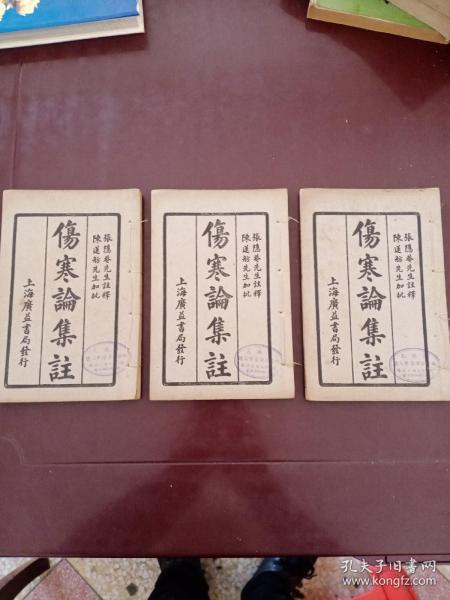 張隱菴先生註釋
陳蓮舫先生加批
傷寒論集註
上海廣益書局發行
張隱菴先生註釋
陳蓮舫先生加批
傷寒論集註
上海廣益書局發行
張隱菴先生註釋
陳蓮舫先生加批
傷寒論集註
上海廣益書局發行
孔夫子旧书网
www.kongfz.com